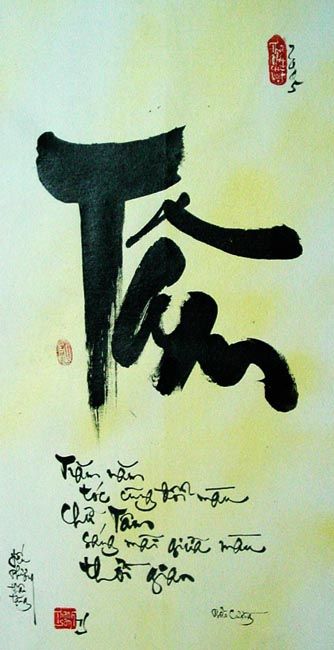 2015
Tâm
Trăm năm
tóc cũng đổi màu
Chữ Tâm
sáng mãi giữa màu
thời gian